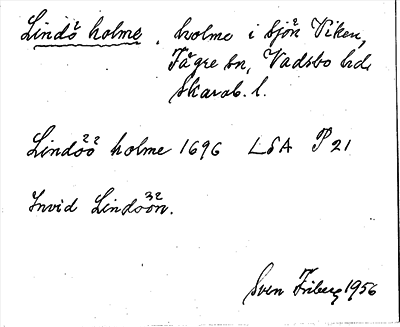 Lindö holme, holme i sjön Viken,
Fägre sn, Vadsbo hd,
Skarab. l.
Lindöö holme 1696 LSA P 21
Invid Lindöön.
Sven Friberg 1956